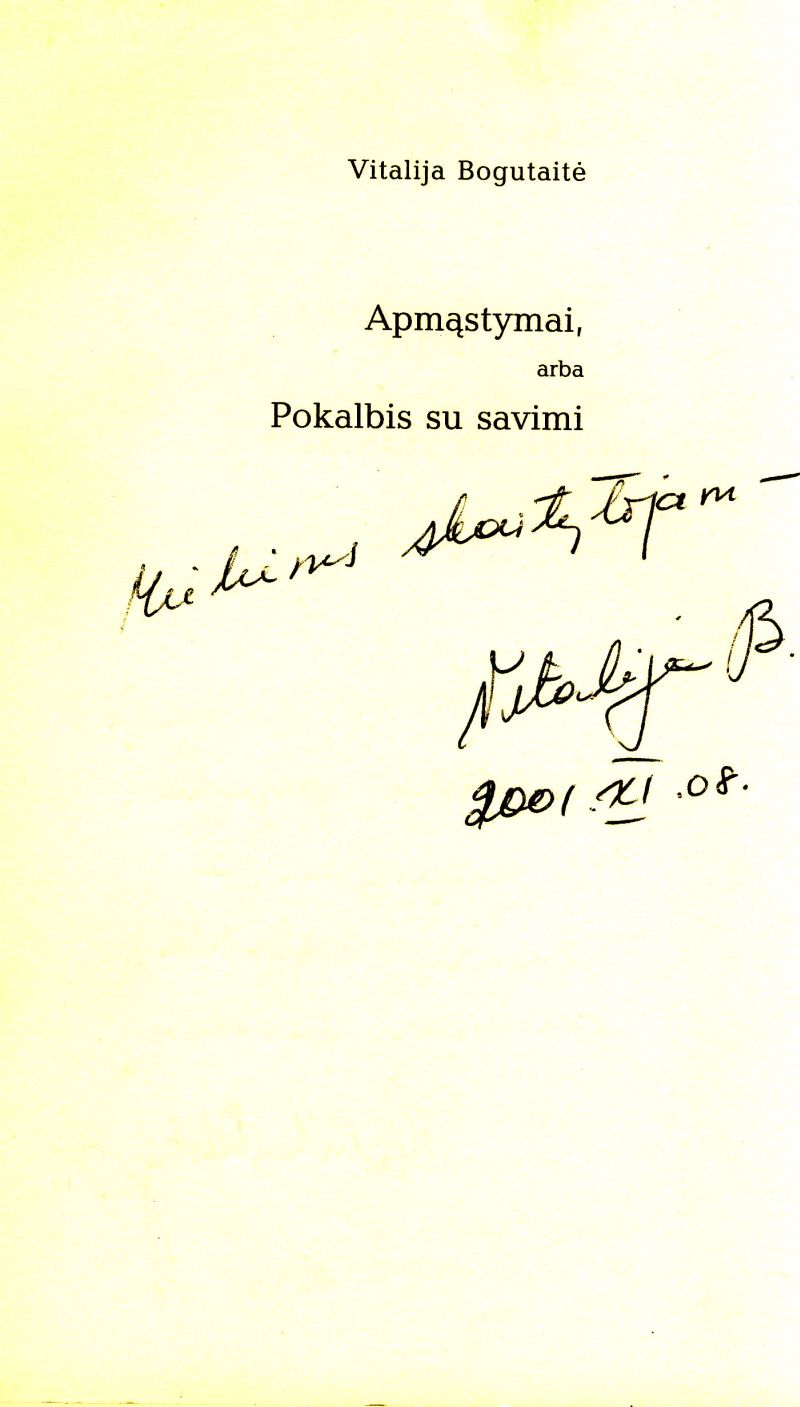 Vitalija Bogutaitė
Apmąstymai,
arba
Pokalbis su savimi
Mieliems skaitytojam –
Vitalija B.
2001.XI.08.